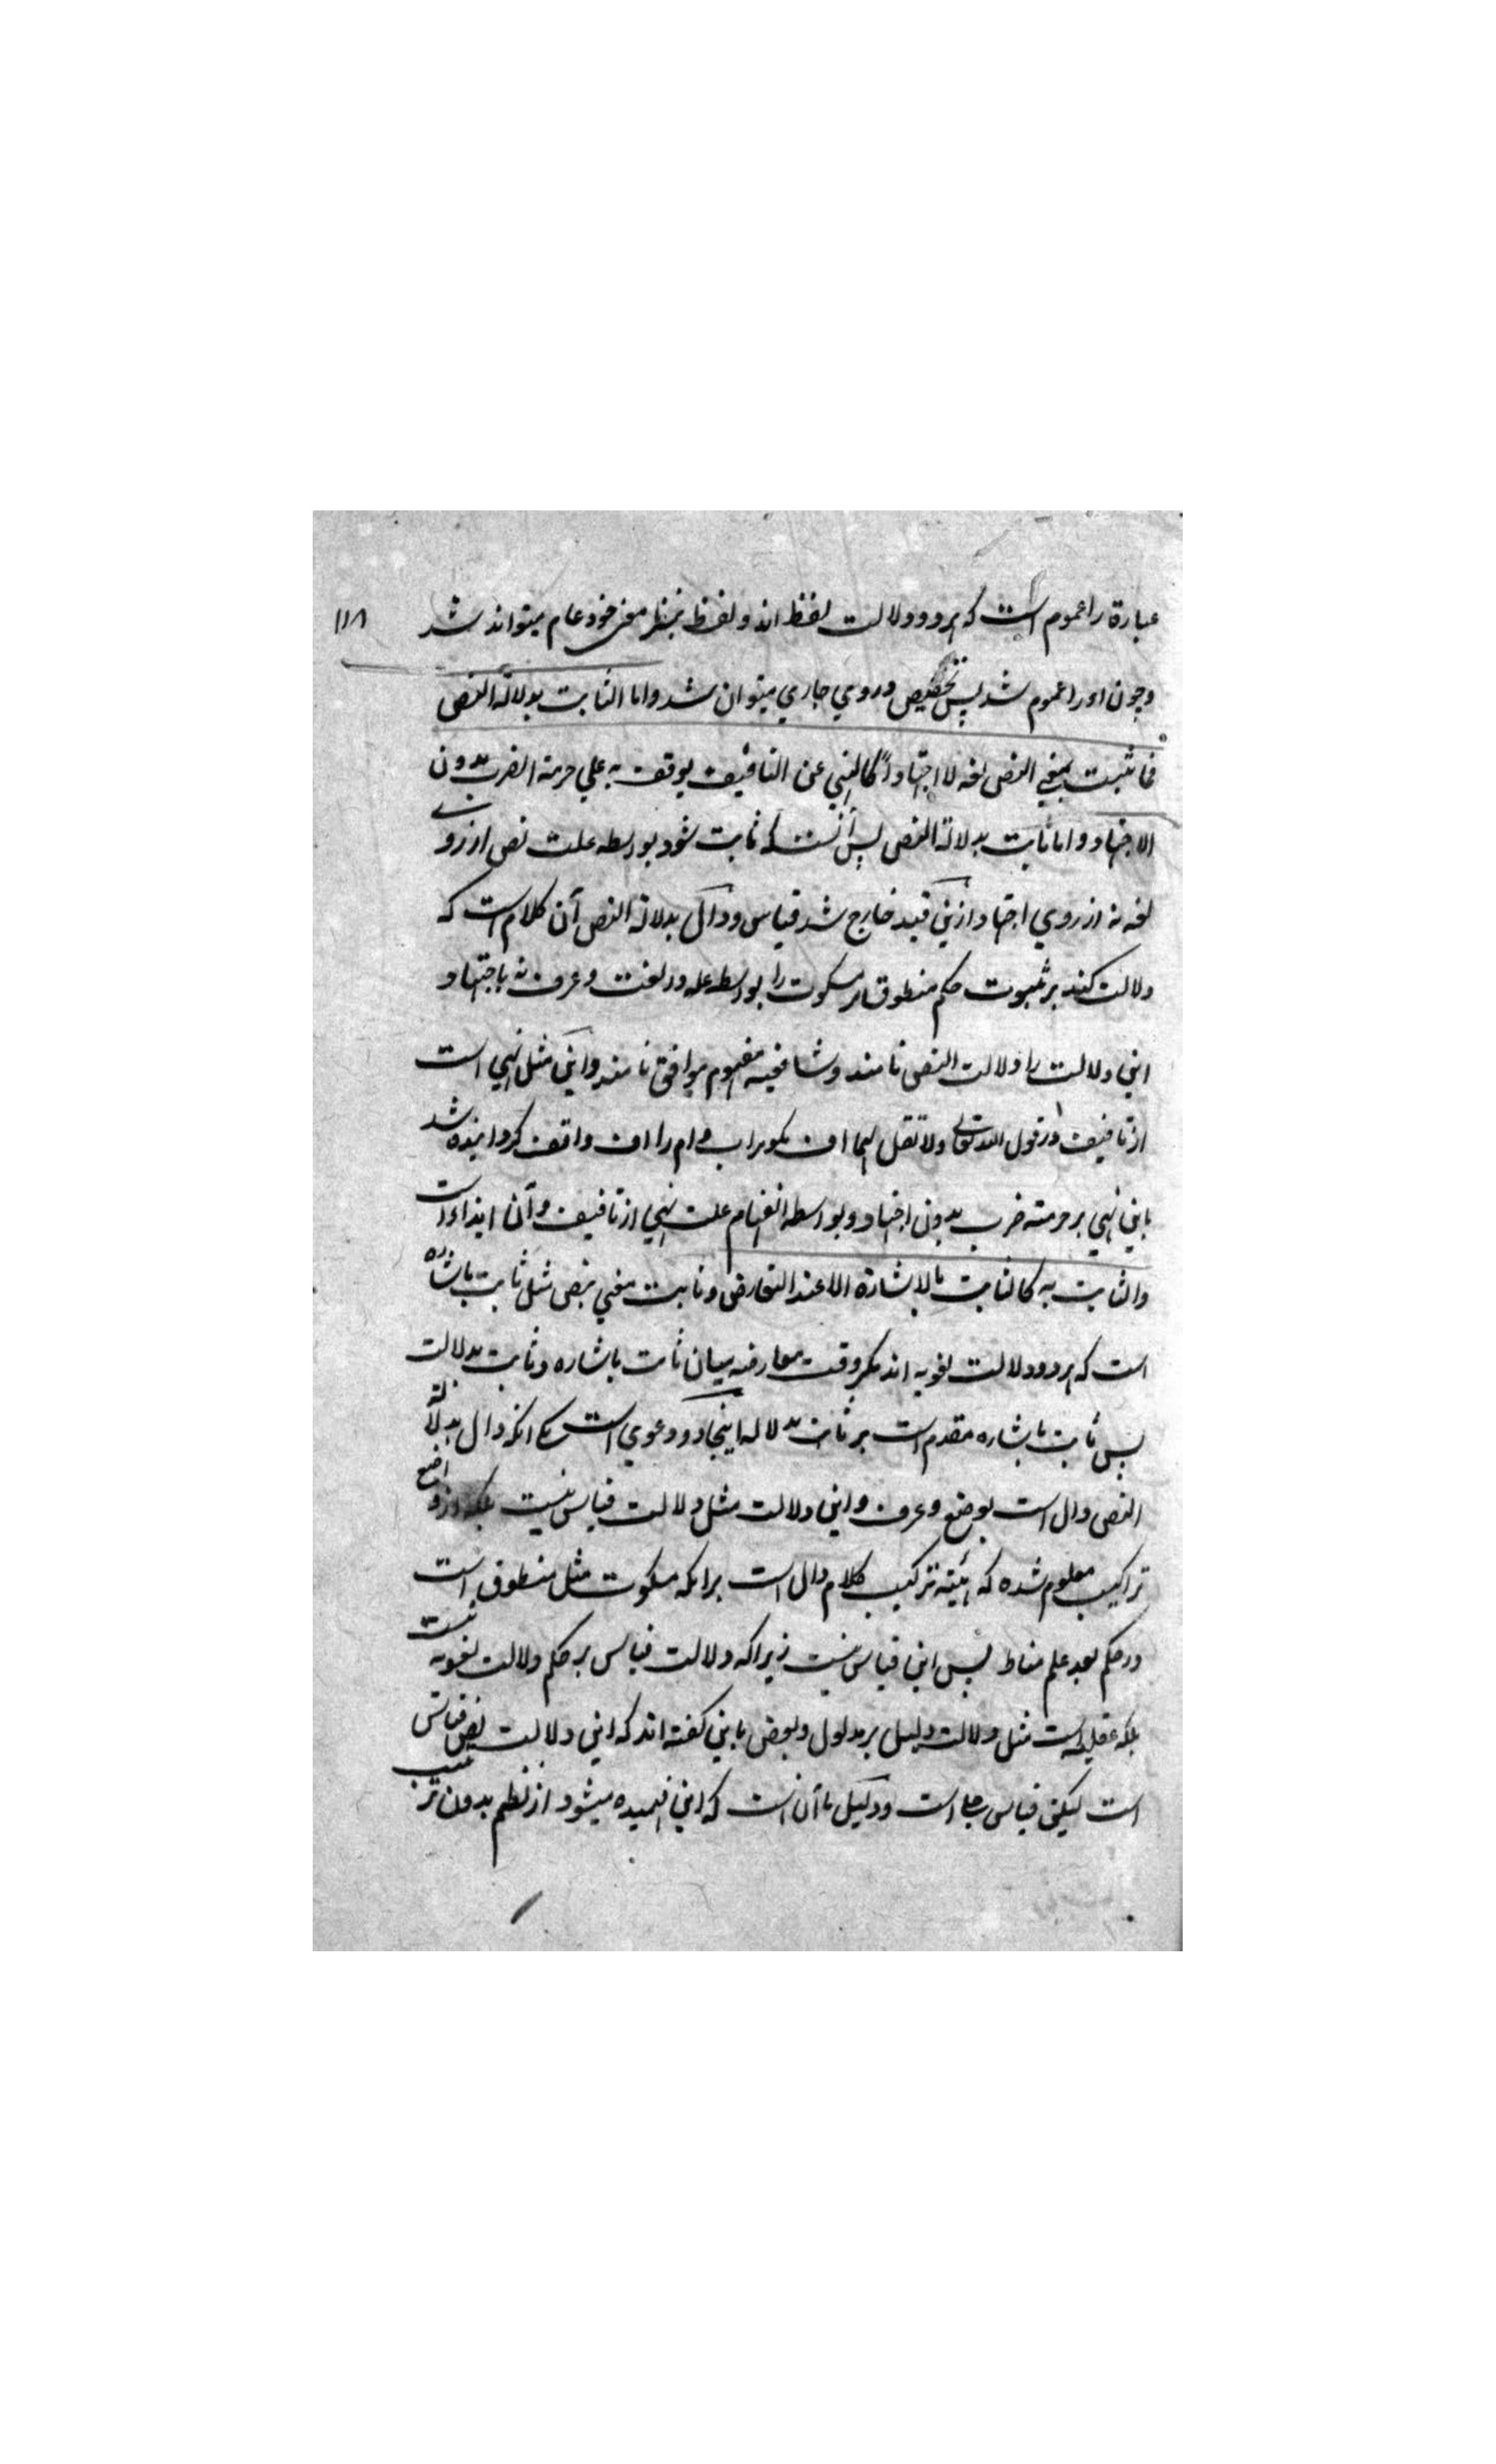 عبارة را عموم است که هر دو دلالت لفظ اند و لفظ بنظر معنی خود عام میتواند شد ۱۱۸
و چون او را عموم شد پس تخصیص در وي جاري میتوان شد واما الثابت بدلالة النص
فما ثبت بمعني النص لغة لا اجتهادا كالنهي عن التافيف يوقف به علي حرمة الضرب بدون
الاجتهاد و اما ثابت بدلالة النص پس آنست که ثابت شود بواسطه علت نص از روے
لغة نه از روي اجتهاد ازین قید خارج شد قیاس ودال بدلالة النص آن کلام است که
دلالت کند بر ثبوت حکم منطوق مر مسکوت را بواسطه علة در لغت و عرف نه باجتهاد و
این دلالت را دلالت النص نامند و شافعیه مفهوم موافق نامند و این مثل نهي است
از تافیف در قول الله تعالی ولا تقل لهما اف مکو مر اب و ام را اف واقف کردانیده شد
باین نهي بر حرمة ضرب بدون اجتهاد و بواسطه انفهام علت نهي از تافیف و آن ایذاء است
والثابت به كالثابت بالاشارة الا عند التعارض و ثابت بمعني نص مثل ثابت باشاره
است که هر دو دلالت لغویه اند مکر وقت معارضه میان ثابت باشاره و ثابت بدلالت
پس ثابت باشاره مقدم است بر ثابت بدلاله اینجا دو دعوي است یکے انکه دال بدلالة
النص دال است بوضع و عرف و این دلالت مثل دلالت قیاس نیست بلکه از وضع
تراکیب معلوم شده که هیئة ترکیب کلام دال است برانکه مسکوت مثل منطوق است
در حکم بعد علم مناط پس این قیاس نیست زیراکه دلالت قیاس بر حکم دلالت لغویه نیست
بلکه عقلیه است مثل دلالت دلیل بر مدلول و بعض باین کفته اند که این دلالت نص قیاس
است لیکن قیاس جلے است و دلیل ما آن است که این فهمیده میشود از نظم بدون ترتیب